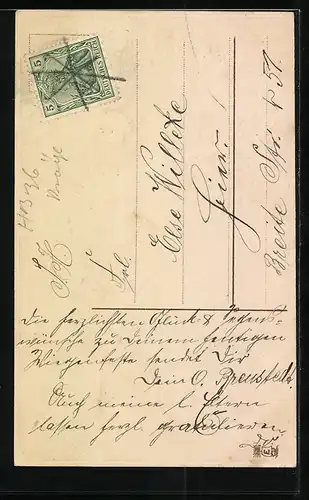 DEUTSCHES REICH
5 5
Frl.
Else Willeke
hier.
Breite Str. 51
Die herzlichsten Glück- & Segens-
wünsche zu Deinem heutigen
Wiegenfeste sendet Dir
Dein O.
Auch meine l. Eltern
lassen herzl. gratulieren.
D. O.